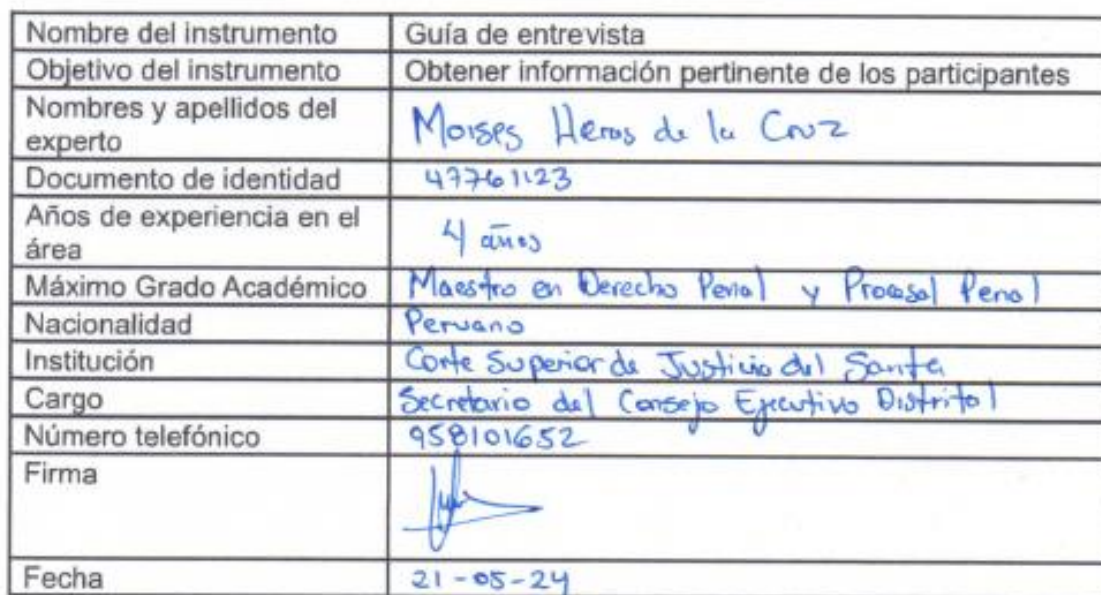 Nombre del instrumento Guía de entrevista
Objetivo del instrumento Obtener información pertinente de los participantes
Nombres y apellidos del
experto Moises Heros de la Cruz
Documento de identidad 47761123
Años de experiencia en el
área 4 años
Máximo Grado Académico Maestro en Derecho Penal y Procesal Penal
Nacionalidad Peruano
Institución Corte Superior de Justicia del Santa
Cargo Secretario del Consejo Ejecutivo Distrital
Número telefónico 958101652
Firma
Fecha 21-05-24